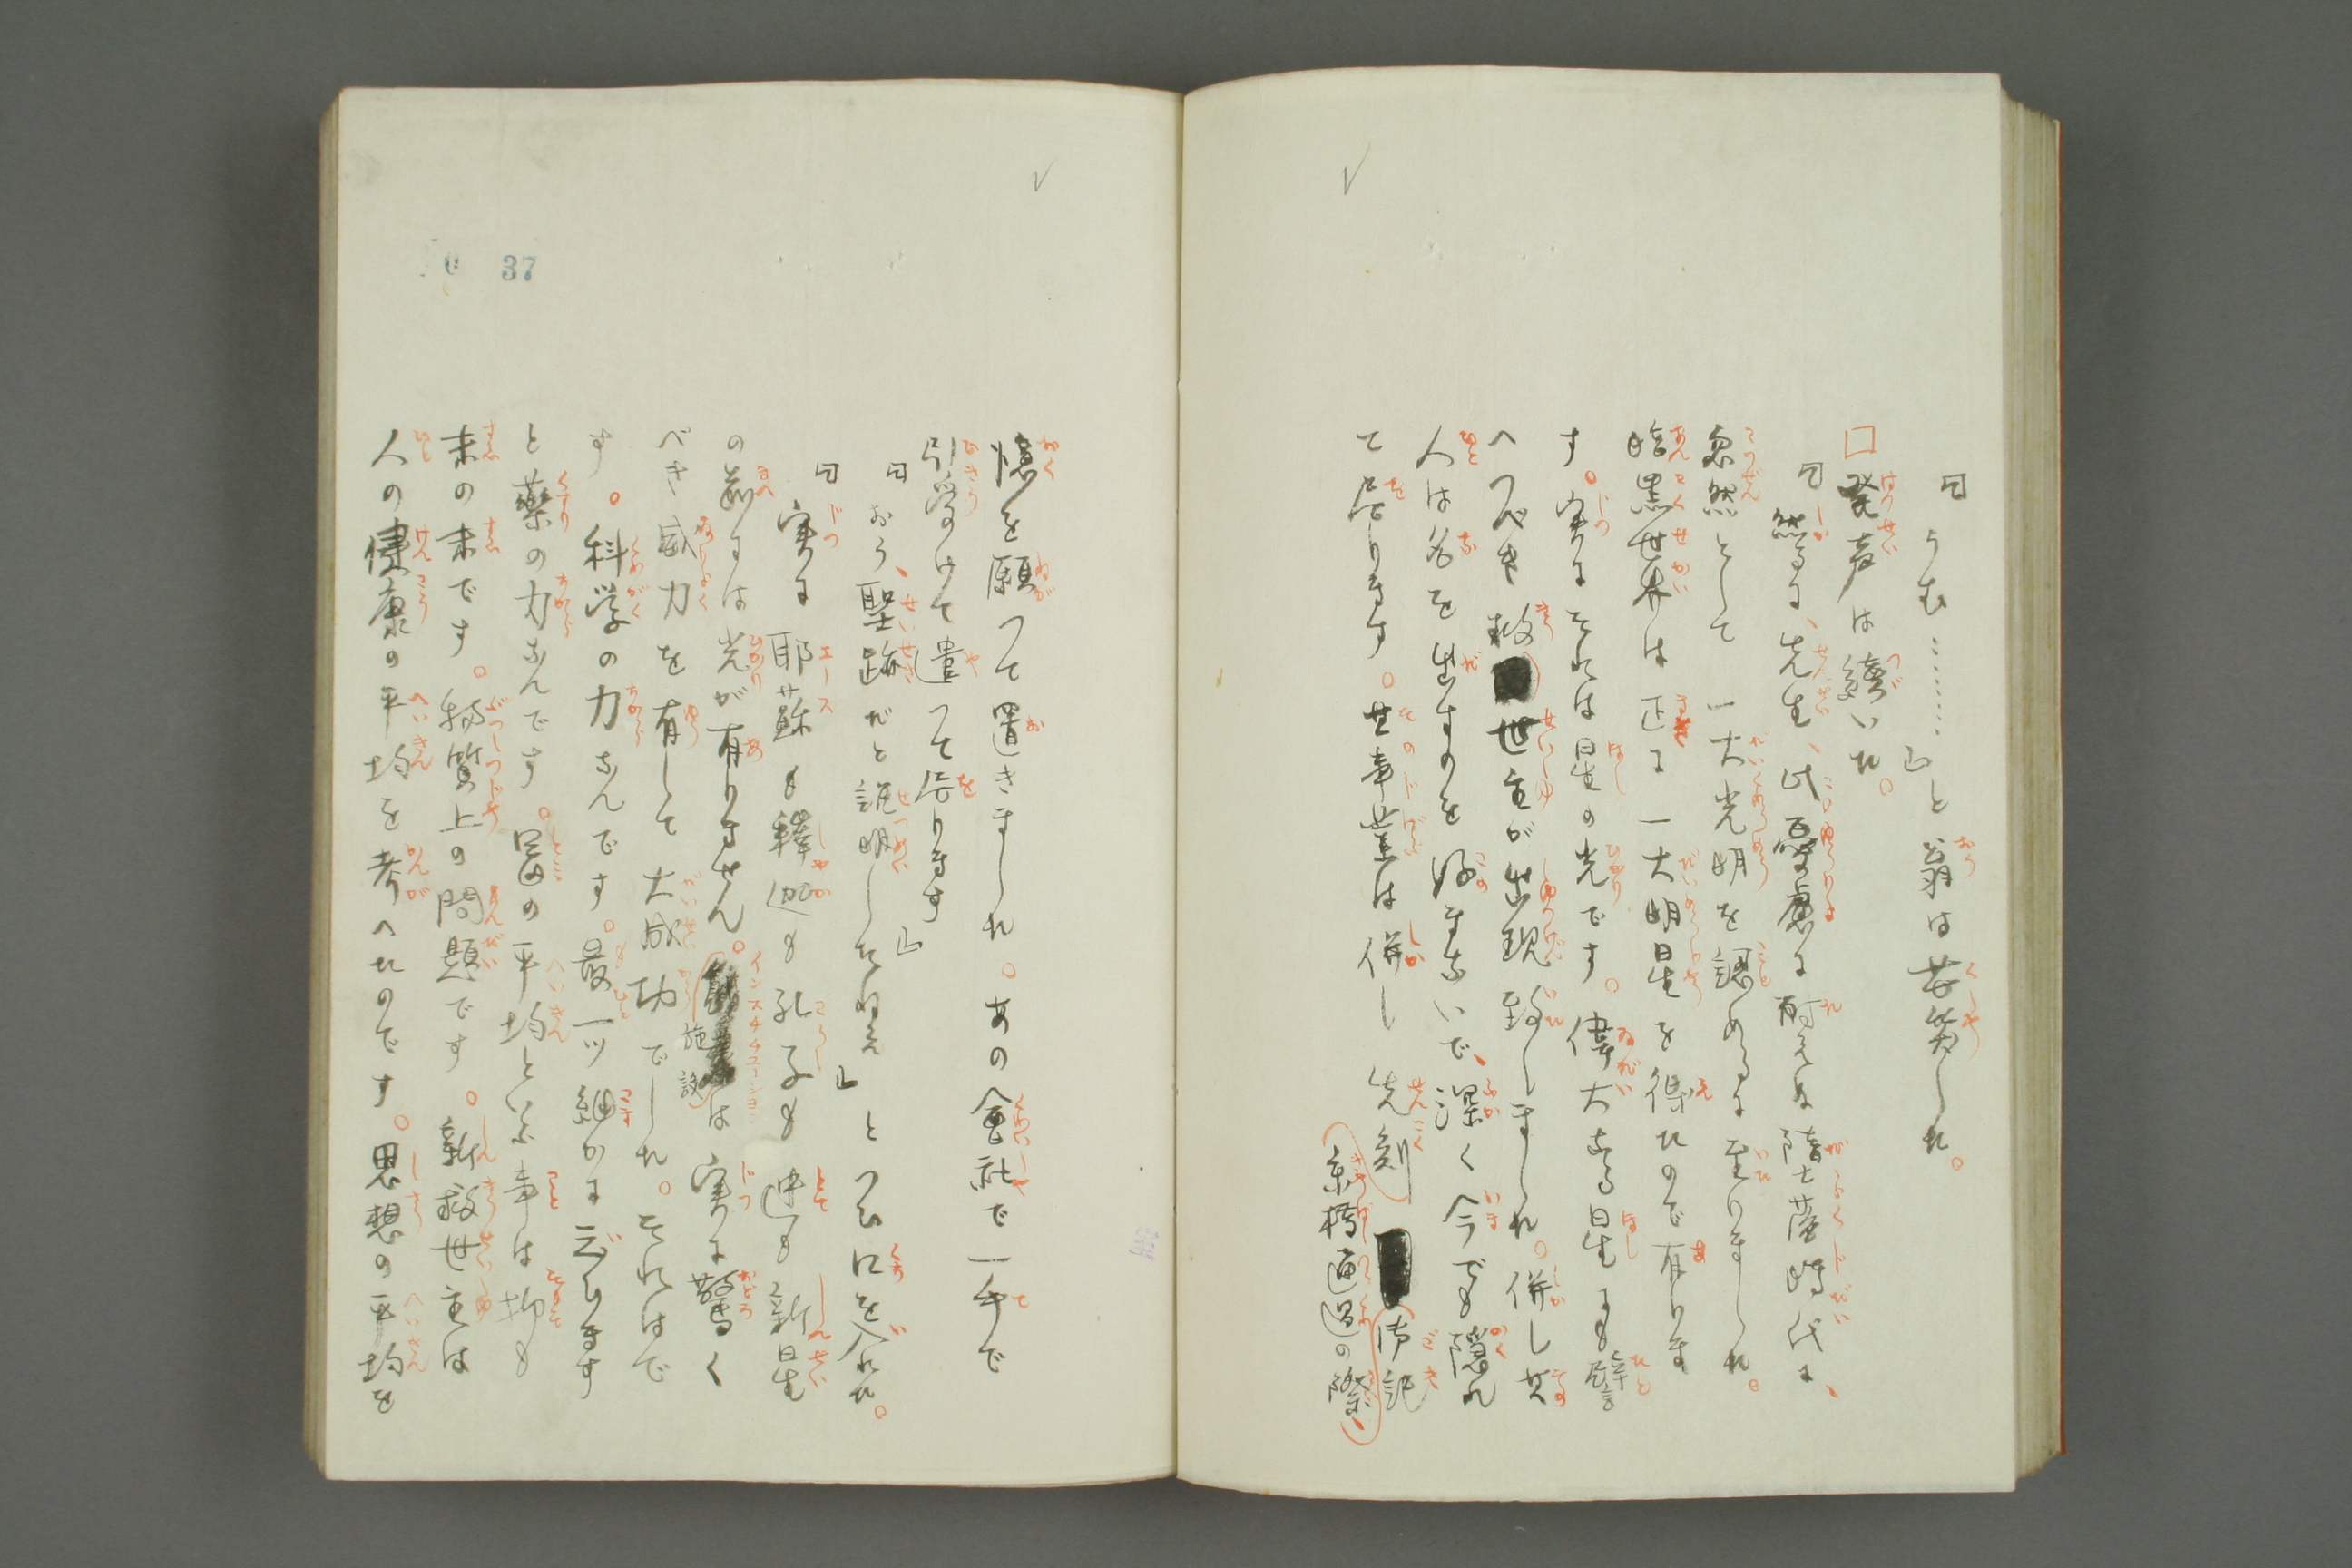 「うむ………」と翁は苦笑した。
発声は続いた。
「然るに、先生、此憂慮に耐えぬ堕落時代に、
忽然として一大光明を認めるに至りました。
暗黒世界は正に一大明星を得たので有りま
す。実にそれは星の光です。偉大なる星にも譬
へつべき救世主が出現致しました。併し其
人は名を出すのを好まないで、深く今でも隠れ
て居ります。其事業は併し先刻
京橋通過の際、
御記
憶を願つて置きました。あの会社で一手で
引受けて遣つて居ります」
「おう、聖跡だと説明したねえ」とつひ口を入れた。
「実に耶蘇も釈迦も孔子も迚も新星
の前には光が有りません。
施設
は実に驚く
べき威力を有して大成功でした。それはで
す。科学の力なんです。最一ツ細かに云ひます
と薬の力なんです。富の平均といふ事は抑も
末の末です。物質上の問題です。新救世主は
人の健康の平均を考へたのです。思想の平均を
37